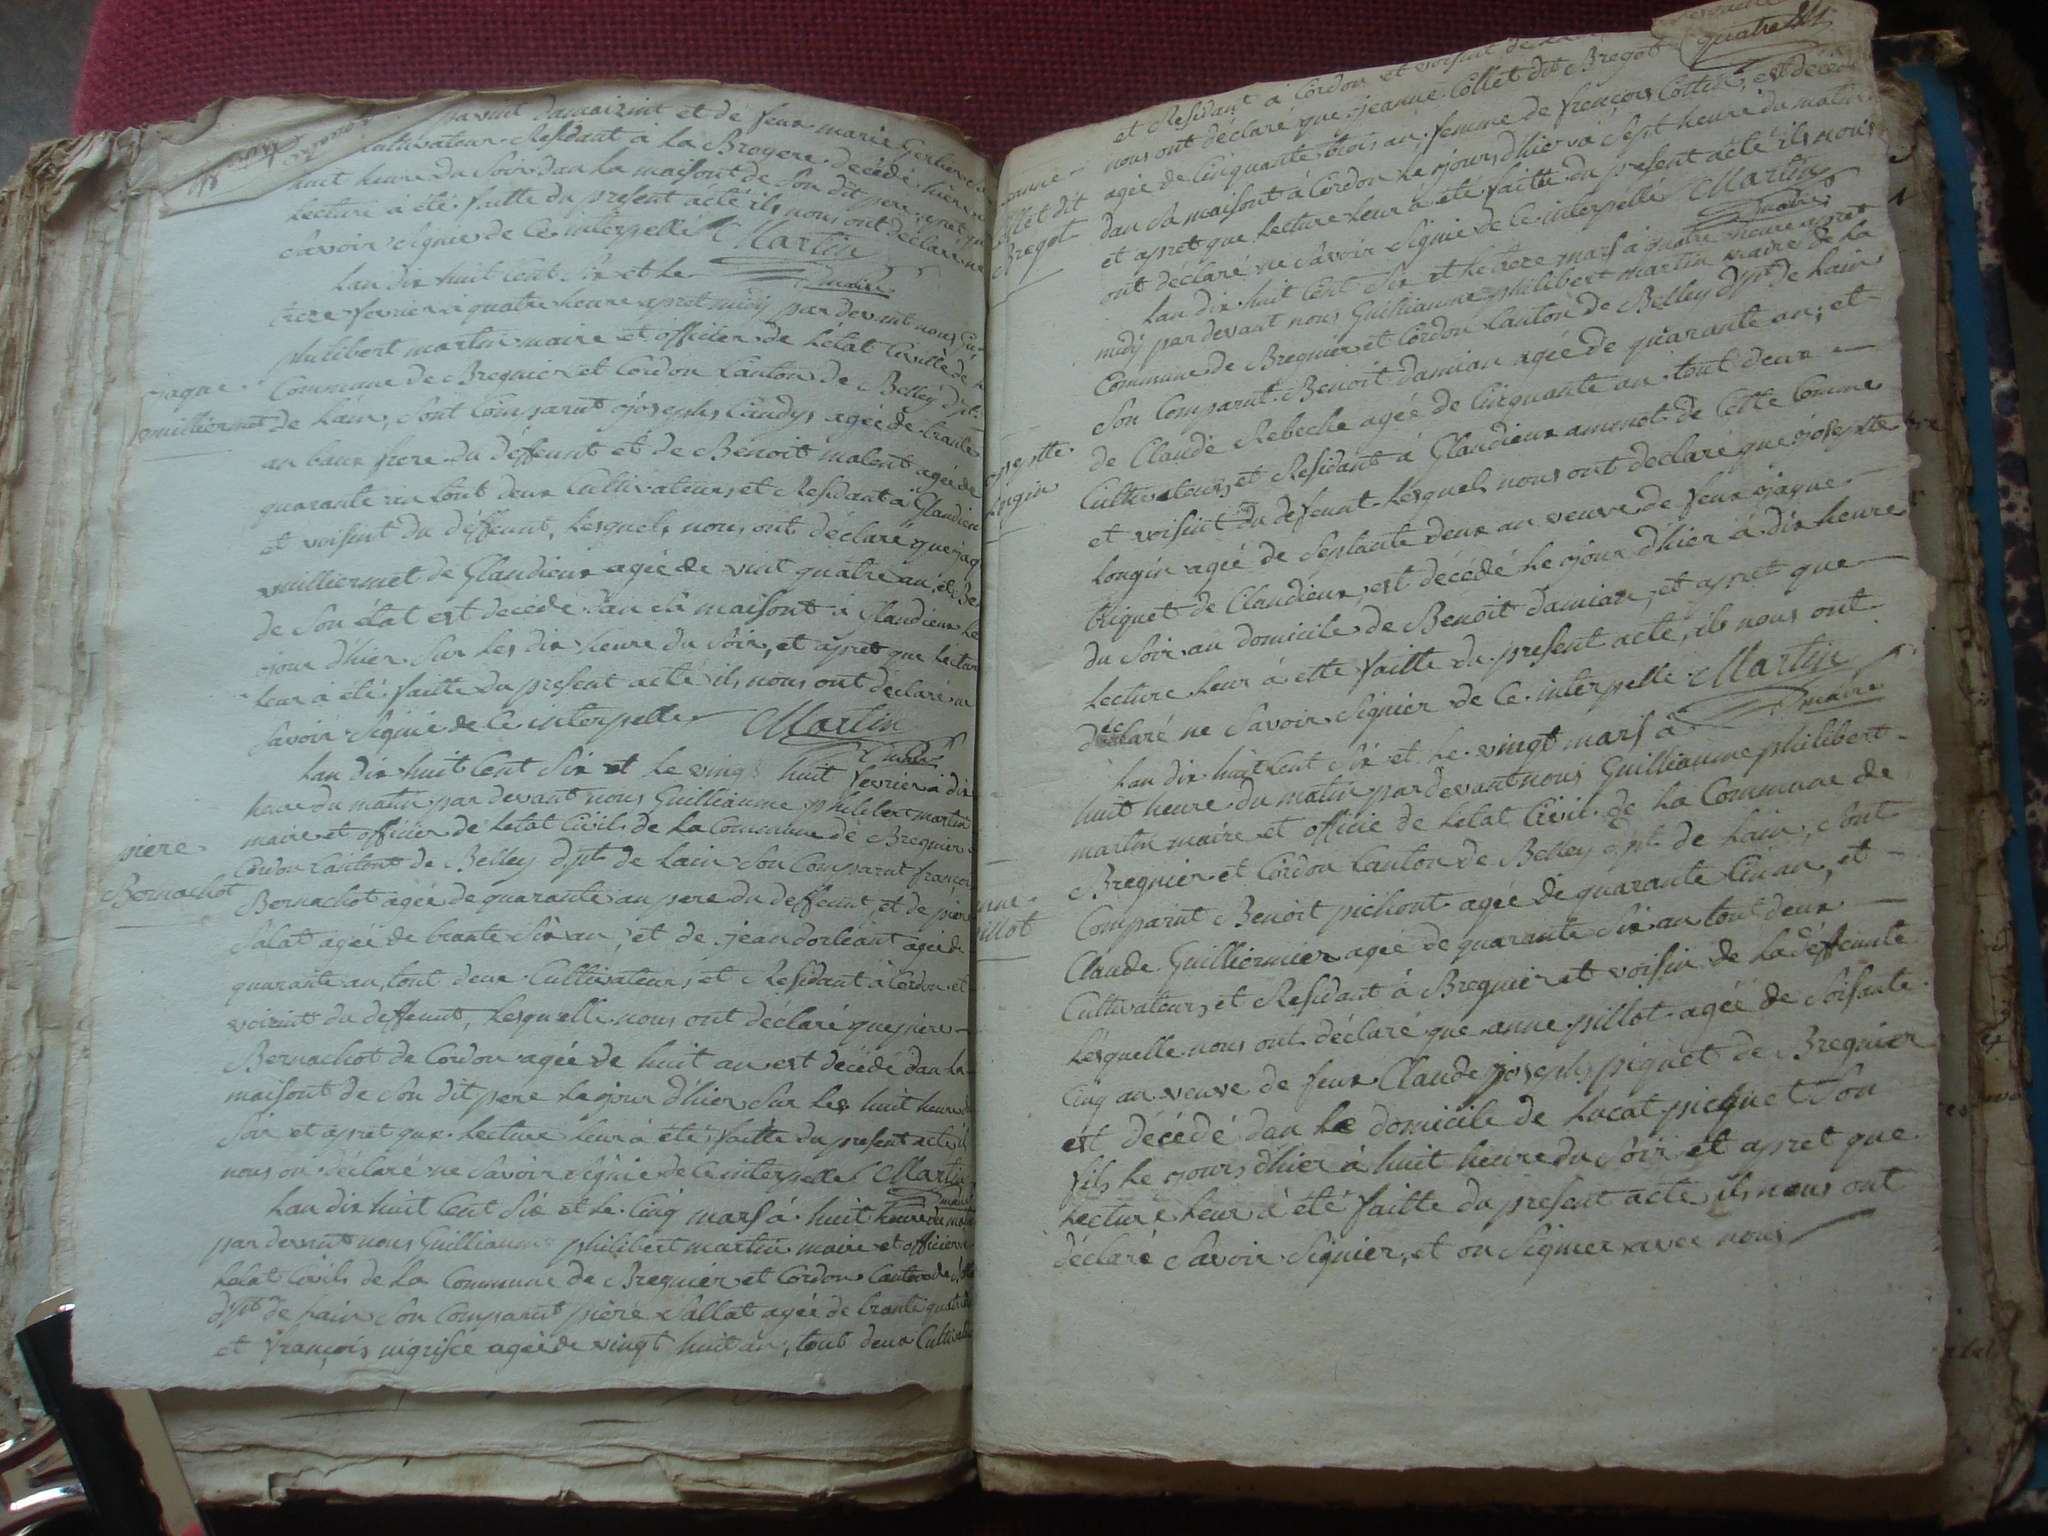 damaizint et de feux marie Gerlier
Cultivateur Residant à la Brogere decédé hier
huit heure du Soir dan la maisont de Son dit pere apret que
Lecture à été faitte du present acté ils nous ont déclaré ne
Savoir Signie de Ce interpellé Martin
maire
Lan dix huit Cent Six et le
treze fevrier à quatre heure apret midÿ par devant nous
philibert martin maire et officier de Létat Civille de
Commune de Bregnier et Cordon Canton de Belley dpt
jaque
vuilliermet
de Lain, Sont Comparut joseph Candy agée de trante
an baux frere du deffeunt et de Benoit molent agée de
quarante an tout deux Cultivateurs et Residant à Glandieu
et voisint du déffeunt, Lesquels nous ont déclaré que jaq
vuilliermet de Glandieux agée de vint quatre an,
de Son état est decédé dan Sa maisont à Glandieux Le
jour d'hier Sur Les dix heure du Soir, et apret que Lectur
Leur à été faitte du present acté ils nous ont déclaré ne
Savoir Signie de Ce interpelle Martin
maire
Lan dix huit Cent Six et Le vingt huit fevrier à dix
heure du matin par devant nous Guilliaume philibert martin
maire et officier de Letat Civils de La Commune de Bregnier
piere
Bernachot
Cordon Canton de Belley dpt de Lain Son Comparut françois
Bernachot agée de quarante an pere du deffeunt, et de piere
Salat agée de trante Six an, et de jean dorleant agée de
quarante an, tout deux Cultivateurs et Residant à Cordon et
voizint du deffeunt, Lesquelle nous ont déclaré que piere
Bernachot de Cordon agée de huit an est décédé dan La
maisont de Son dit pere Le jour d'hier Sur Les huit heure du
Soir et apret que Lecture Leur à été faitte du present acté il
nous on déclaré ne Savoir Signie de Ce interpelle Martin
maire
Lan dix huit Cent Six et Le Cinq mars à huit heure du matin
par devant nous Guilliaume philibert martin maire et officier
Letat Civils de La Commune de Bregnier et Cordon Canton de
dpt de Lain Son Comparut piere Sallat agée de trante quatre
et françois nigrisce agée de vingt huit an, tout deux Cultivat
quatre
et Residant à Cordon et voisint de
nous ont déclaré que jeanne Collet dit Bregot
agée de Cinquante trois an, femme de françois Cottin, est decédé
Collet dit
Bregot
dan Sa maisont à Cordon Le jours d'hier à Sept heure du matin
et apret que Lecture Leur à été faitte du present acté ils nous
ont déclaré ne Savoir Signie de Ce interpellé Martin
maire
Lan dix huit Cent Six et Le treze mars à quatre heure apret
midÿ par devant nous Guilliaume philibert martin maire de La
Commune de Bregnier et Cordon Canton de Belley dpt de Lain
Son Comparut Benoit damian agée de quarante an, et
de Claude Rebeche agée de Cinquante an tout deux
Longin
Cultivateur, et Residant à Glandieux de Cette Comme
et voisint du defeunt Lesquels nous ont déclaré que josephte
Longin agée de Septante deux an veuve de feux jaque
triquet de Claudieux, est décédé Le jour d'hier à dix heure
du Soir au domicile de Benoit damian, et apret que
Lecture Leur à etté faitte du present acté, ils nous ont
declaré ne Savoir Signier de Ce interpelle Martin
maire
Lan dix huit Cent Six et Le vingt mars à
huit heure du matin par devant nous Guilliaume philibert
martin maire et officie de Letat Civil de La Commune de
Bregnier et Cordon Canton de Belley dpt de Lain, Sont
Comparut Benoit pichont agée de quarante Cin an, et
Claude Guilliermier agée de quarante Six an tout deux
Cultivateur, et Residant à Bregnier et voisin de La déffeunte
Lesquelle nous ont déclaré que anne pillot agée de Soisante
Cinq an veuve de feux Claude joseph piquet de Bregnier
est décédé dan Le domicile de Lucat picquet Son
fils Le jours d'hier à huit heure du Soir et apret que
Lecture Leur à été faitte du present acte, ils nous ont
déclaré Savoir Signier, et on Signier avec nous